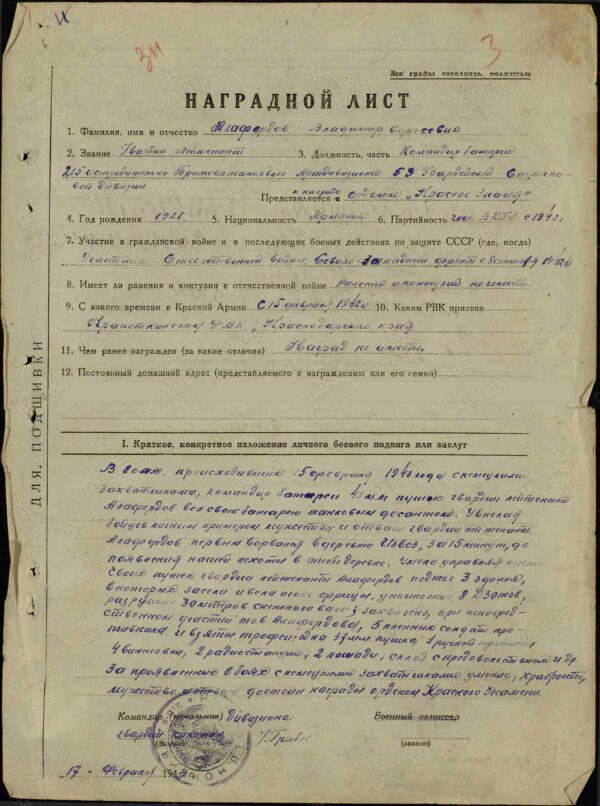 и
3и
3
Все графы заполнять полностью
НАГРАДНОЙ ЛИСТ
1. Фамилия, имя и отчество Алафердов Владимир Сергеевич
2. Звание Гвардии лейтенант 3. Должность, часть Командир батареи
215 истребительно Противотанкового Артдивизиона 59 Гвардейской Стрелко-
вой дивизии
Представляется к награде орденом "Красное Знамя"
4. Год рождения 1921 5. Национальность Армянин 6. Партийность член ВКПб с 1942 г.
7. Участие в гражданской войне и в последующих боевых действиях по защите СССР (где, когда)
Участник Отечественной войны, Северо-Западный фронт с
8. Имеет ли ранения и контузии в отечественной войне ранений и контузий не имеет.
9. С какого времени в Красной Армии С 15 февраля 1942 г 10. Каким РВК призван
Кропоткинским РВК, Краснодарского края
11. Чем ранее награжден (за какие отличия) Наград не имеет.
12. Постоянный домашний адрес (представляемого к награждению или его семьи)
ДЛЯ ПОДШИВКИ
I. Краткое, конкретное изложение личного боевого подвига или заслуг
В боях, происходивших 15 февраля 1943 года с немецкими
захватчиками, командир батареи 45 м.м. пушек гвардии лейтенант
Алафердов вел свою батарею танковым десантом. Увлекая
бойцов личным примером мужества и отваги гвардии лейтенант
Алафердов первым ворвался в деревню Извоз, за 15 минут до
появления нашей пехоты в этой деревне. Умело управляя огнем
своих пушек гвардии лейтенант Алафердов поджег 3 здания,
в которых засели и вели огонь фрицы, уничтожил 8 ДЗОТов,
разрушил 30 метров снежного вала; захвачено, при непосред-
ственном участии тов Алафердова, 5 пленных солдат про-
тивника и взяты трофеи: одна 37 мм пушка, 1 ручной пулемет,
4 винтовки, 2 радиостанции, 2 лошади, склад с продовольствием и др.
За проявленные в боях с немецкими захватчиками умение, храбрость,
мужество и отвагу достоин награды орденом Красного Знамени.
Командир (начальник) дивизиона Военный комиссар
гвардии капитан (звание) /Грибов (звание)
"17" Февраля 1943